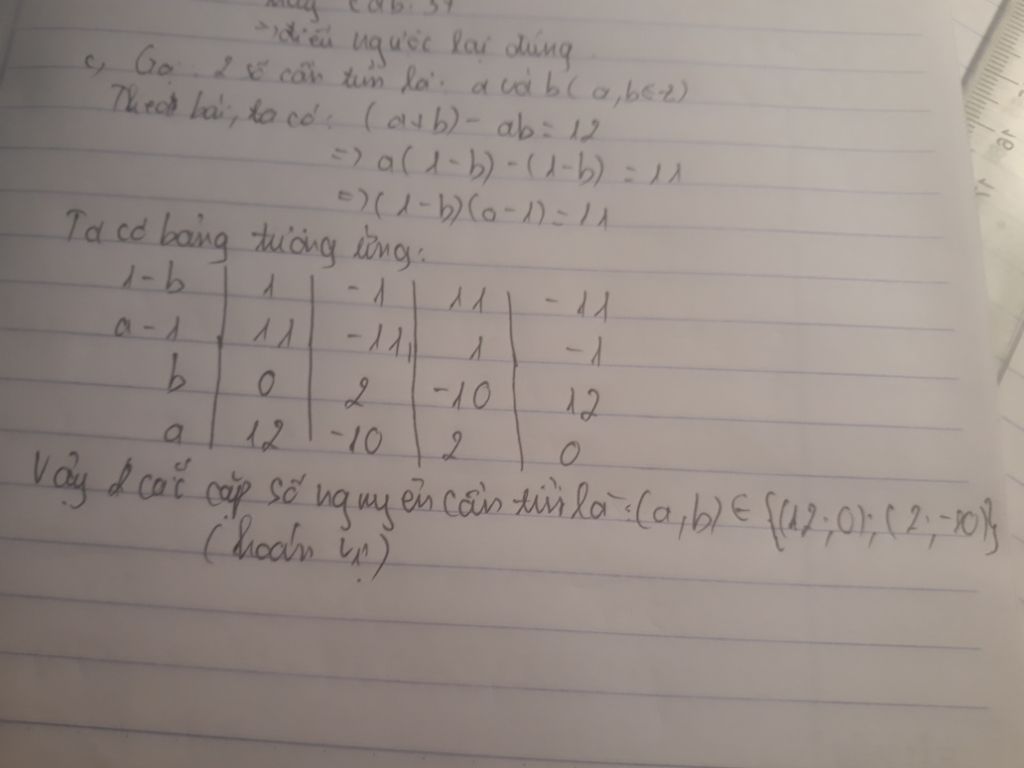 => điều ngược lại đúng.
c, Gọi 2 số cần tìm là: a và b (a, b ∈ Z)
Theo bài, ta có: (a+b) - ab = 12
=> a(1-b) - (1-b) = 11
=> (1-b)(a-1) = 11
Ta có bảng tương ứng:
1-b | 1 | -1 | 11 | -11
a-1 | 11 | -11 | 1 | -1
b | 0 | 2 | -10 | 12
a | 12 | -10 | 2 | 0
Vậy các cặp số nguyên cần tìm là: (a,b) ∈ {(12;0); (2;-10)}
(hoán vị)